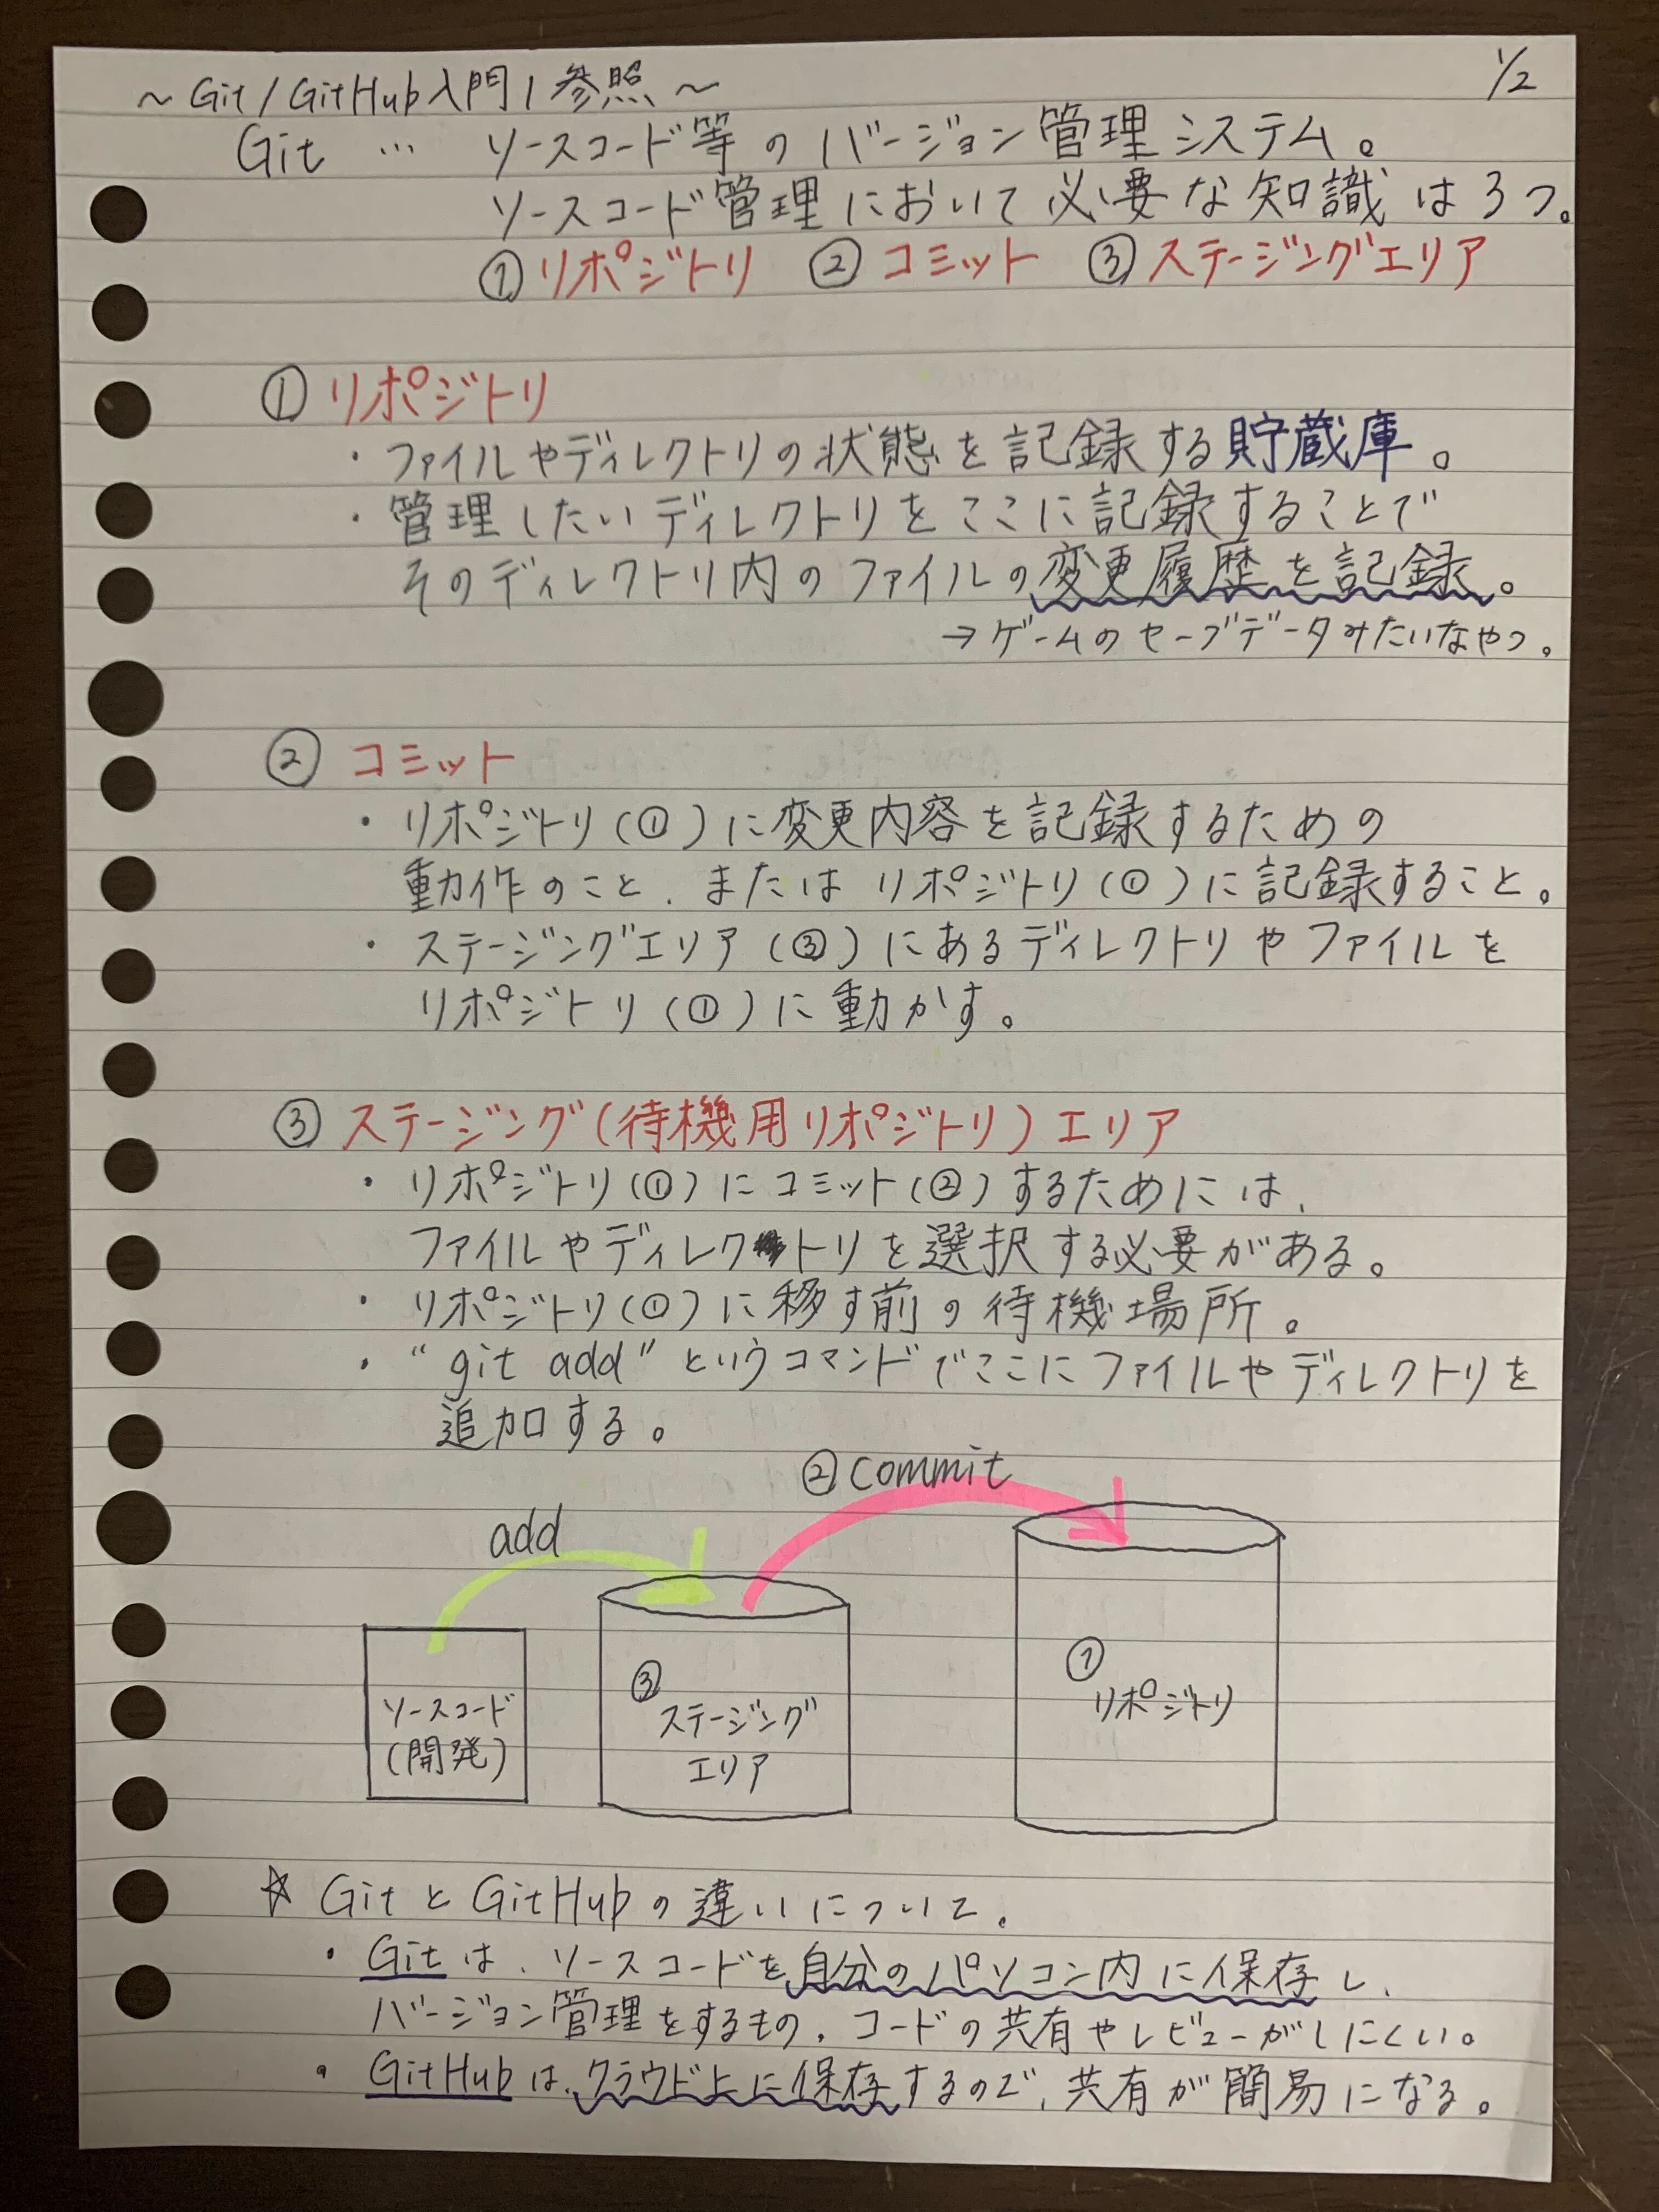 1/2
～Git/GitHub入門1参照～
Git … ソースコード等のバージョン管理システム。
ソースコード管理において必要な知識は3つ。
①リポジトリ ②コミット ③ステージングエリア
①リポジトリ
・ファイルやディレクトリの状態を記録する貯蔵庫。
・管理したいディレクトリをここに記録することで
そのディレクトリ内のファイルの変更履歴を記録。
→ゲームのセーブデータみたいなやつ。
②コミット
・リポジトリ(①)に変更内容を記録するための
動作のこと、またはリポジトリ(①)に記録すること。
・ステージングエリア(③)にあるディレクトリやファイルを
リポジトリ(①)に動かす。
③ステージング(待機用リポジトリ)エリア
・リポジトリ(①)にコミット(②)するためには、
ファイルやディレクトリを選択する必要がある。
・リポジトリ(①)に移す前の待機場所。
・“git add”というコマンドでここにファイルやディレクトリを
追加する。
②commit
add
ソースコード
(開発)
③
ステージング
エリア
①
リポジトリ
☆GitとGitHubの違いについて、
・Gitは、ソースコードを自分のパソコン内に保存し、
バージョン管理をするもの、コードの共有やレビューがしにくい。
・GitHubは、クラウド上に保存するので、共有が簡易になる。